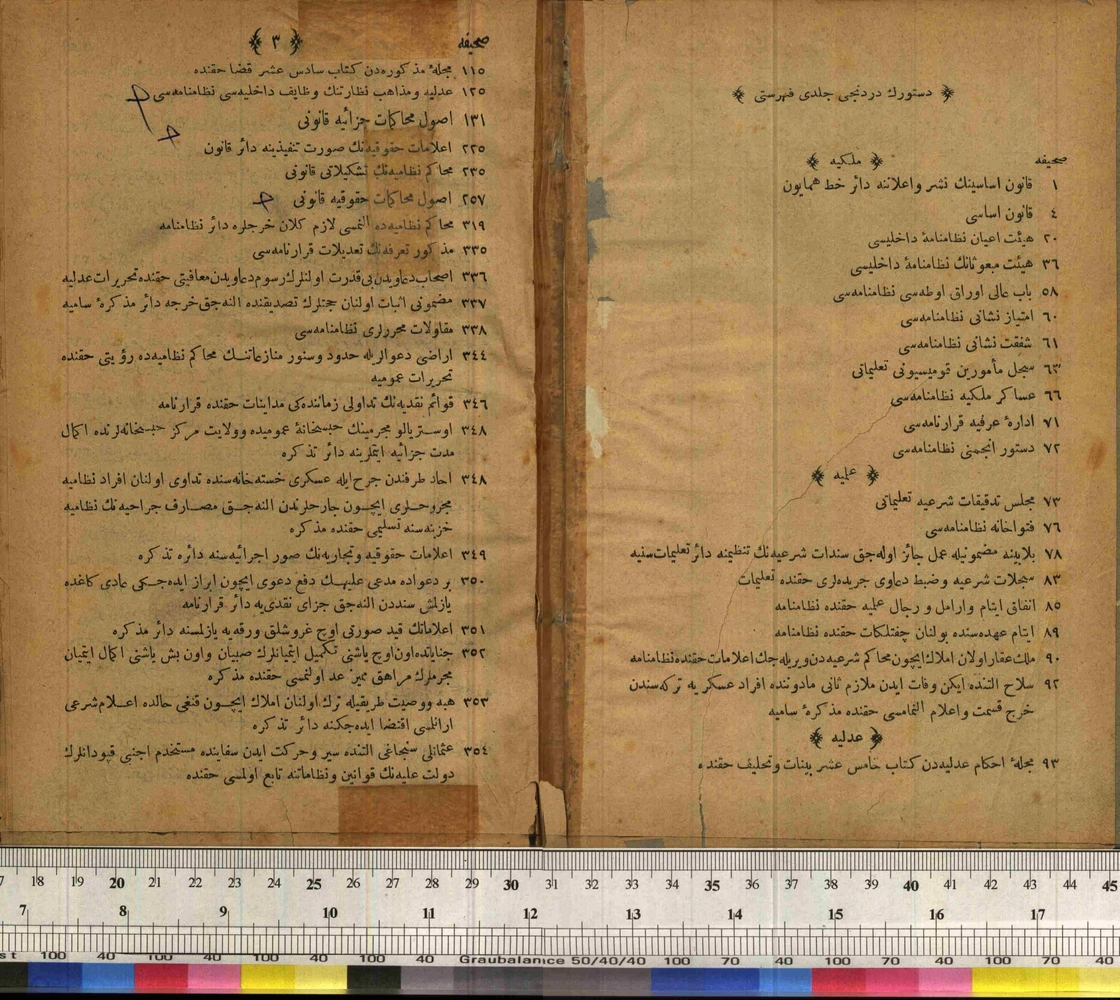 دستورك دردنجی جلدی فهرستی
صحیفه
ملكیه
١ قانون اساسینك نشر واعلاننه دائر خط همایون
٤ قانون اساسی
٢٠ هیئت اعیان نظامنامهٔ داخلیسی
٣٦ هیئت مبعوثانك نظامنامهٔ داخلیسی
٥٨ باب عالی اوراق اوطه‌سی نظامنامه‌سی
٦٠ امتیاز نشانی نظامنامه‌سی
٦١ شفقت نشانی نظامنامه‌سی
٦٣ سجل مأمورین قومیسیونی تعلیماتی
٦٦ عساكر ملكیه نظامنامه‌سی
٧١ ادارهٔ عرفیه قرارنامه‌سی
٧٢ دستور انجمنی نظامنامه‌سی
علمیه
٧٣ مجلس تدقیقات شرعیه تعلیماتی
٧٦ فتواخانه نظامنامه‌سی
٧٨ بلابینه مضمونیله عمل جائز اوله‌جق سندات شرعیه‌نك تنظیمنه دائر تعلیمات سنیه
٨٣ سجلات شرعیه وضبط دعاوی جریده‌لری حقنده تعلیمات
٨٥ انفاق ایتام وارامل و رجال علمیه حقنده نظامنامه
٨٩ ایتام عهده‌سنده بولنان چفتلكات حقنده نظامنامه
٩٠ ملك عقار اولان املاك ایچون محاكم شرعیه‌دن ویریله‌جك اعلامات حقنده نظامنامه
٩٢ سلاح التنده ایكن وفات ایدن ملازم ثانی مادوننده افراد عسكریه تركه‌سندن
خرج قسمت واعلام النمامسی حقنده مذكرهٔ سامیه
عدلیه
٩٣ مجلهٔ احكام عدلیه‌دن كتاب خامس عشر بینات وتحلیف حقنده
صحیفه
٣
١١٥ مجلهٔ مذكوره‌دن كتاب سادس عشر قضا حقنده
١٢٥ عدلیه ومذاهب نظارتنك وظایف داخلیه‌سی نظامنامه‌سی
١٣١ اصول محاكمات جزائیه قانونی
٢٢٥ اعلامات حقوقیه‌نك صورت تنفیذینه دائر قانون
٢٣٥ محاكم نظامیه‌نك تشكیلاتی قانونی
٢٥٧ اصول محاكمات حقوقیه قانونی
٣١٩ محاكم نظامیه‌ده النمسی لازم كلان خرجلره دائر نظامنامه
٣٣٥ مذكور تعرفه‌نك تعدیلات قرارنامه‌سی
٣٣٦ اصحاب دعاویدن بی‌قدرت اولنلرك رسوم دعاویدن معافیتی حقنده تحریرات عدلیه
٣٣٧ مضمونی اثبات اولنان حجتلرك تصدیقنده النه‌جق خرجه دائر مذكرهٔ سامیه
٣٣٨ مقاولات محررلری نظامنامه‌سی
٣٤٤ اراضی دعوالریله حدود وسنور منازعاتنك محاكم نظامیه‌ده رؤیتی حقنده
تحریرات عمومیه
٣٤٦ قوائم نقدیه‌نك تداولی زماننده‌كی مداینات حقنده قرارنامه
٣٤٨ اوستریالو مجرمینك حبسخانهٔ عمومیده وولایت مركز حبسخانه‌لرنده اكمال
مدت جزائیه ایتملرینه دائر تذكره
٣٤٨ احاد طرفندن جرح ایله عسكری خسته‌خانه‌سنده تداوی اولنان افراد نظامیه
مجروحلری ایچون جارحلرندن النه‌جق مصارف جراحیه‌نك نظامیه
خزینه‌سنه تسلیمی حقنده مذكره
٣٤٩ اعلامات حقوقیه وتجاریه‌نك صور اجرائیه‌سنه دائره تذكره
٣٥٠ بر دعواده مدعی علیهك دفع دعوی ایچون ابراز ایده‌جكی عادی كاغده
یازلمش سنددن النه‌جق جزای نقدی‌یه دائر قرارنامه
٣٥١ اعلاماتك قید صورتی اوچ غروشلق ورقه‌یه یازلمسنه دائر مذكره
٣٥٢ جنایاتده اون اوچ یاشنی تكمیل ایتمیانلرك صبیان واون بش یاشنی اكمال ایتمیان
مجرملرك مراهق ممیز عد اولنمسی حقنده مذكره
٣٥٣ هبه ووصیت طریقیله ترك اولنان املاك ایچون قنغی حالده اعلام شرعی
ارانلمسی اقتضا ایده‌جكنه دائر تذكره
٣٥٤ عثمانلی سنجاغی التنده سیر وحركت ایدن سفاینده مستخدم اجنبی قپودانلرك
دولت علیه‌نك قوانین ونظاماتنه تابع اولمسی حقنده
17 18 19 20 21 22 23 24 25 26 27 28 29 30 31 32 33 34 35 36 37 38 39 40 41 42 43 44 45
7 8 9 10 11 12 13 14 15 16 17
100 40 100 40 100 40 100 40 Graubalance 50/40/40 100 70 40 100 70 40 100 70 40